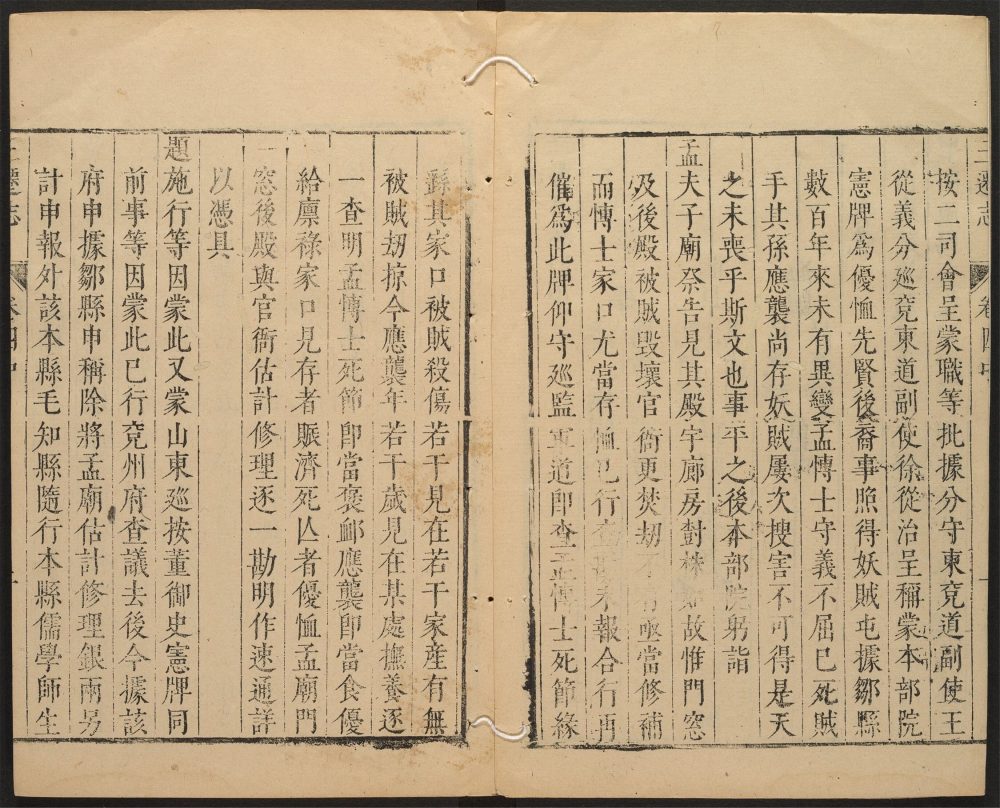 三遷志 卷四中
按二司會呈蒙職等批據分守東兖道副使王
從義分巡兖東道副使徐從治呈稱蒙本部院
憲牌爲優恤先賢後裔事照得妖賊屯據鄒縣
數百年來未有異變孟博士守義不屈已死賊
手其孫應襲尚存妖賊屢次搜害不可得是天
之未喪乎斯文也事平之後本部院躬詣
孟夫子廟祭告見其殿宇廊房對株如故惟門窓
及後殿被賊毀壞官衙更焚刼亟當修補
而博士家口尤當存恤已行未報合行再
催爲此牌仰守巡監軍道卽查孟博士死節緣
繇其家口被賊殺傷若干見在若干家産有無
被賊刼掠今應襲年若干歲見在某處撫養逐
一查明孟博士死節卽當褒䘏應襲卽當食優
給廪祿家口見存者賑濟死亾者優恤孟廟門
窓後殿與官衙估計修理逐一勘明作速通詳
以憑具
題施行等因蒙此又蒙山東巡按董御史憲牌同
前事等因蒙此已行兖州府查議去後今據該
府申據鄒縣申稱除將孟廟估計修理銀兩另
計申報外該本縣毛知縣隨行本縣儒學師生
三遷志 卷四中